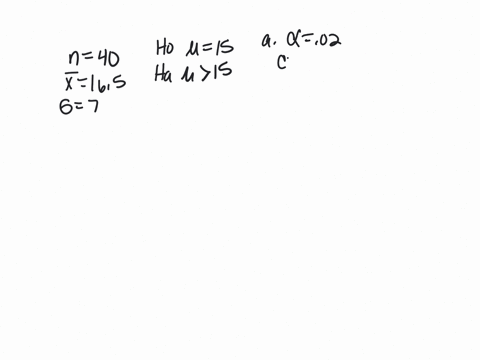 n=40
x̄=16.5
σ=7
Ho μ=15
Ha μ>15
a. α=.02
C